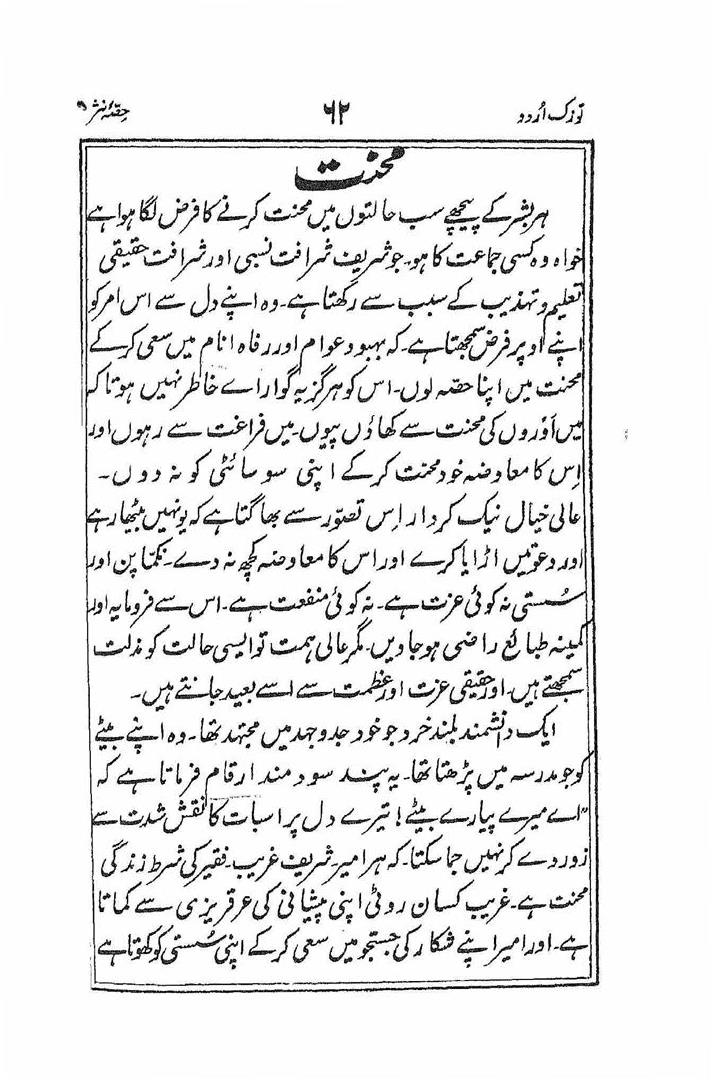 توزک اُردو ۶۲ حصّۂ نثر
محنت
ہر بشر کے پیچھے سب حالتوں میں محنت کرنے کا فرض لگا ہوا ہے
خواہ وہ کسی جماعت کا ہو۔ جو شریف شرافت نسبی اور شرافت حقیقی
تعلیم و تہذیب کے سبب سے رکھتا ہے۔ وہ اپنے دل سے اس امر کو
اپنے اوپر فرض سمجھتا ہے۔ کہ بہبود عوام اور رفاہ انام میں سعی کر کے
محنت میں اپنا حصّہ لوں۔ اس کو ہرگز یہ گوارائے خاطر نہیں ہوتا کہ
میں اَوروں کی محنت سے کھاؤں پیوں۔ میں فراغت سے رہوں اور
اِس کا معاوضہ خود محنت کر کے اپنی سوسائٹی کو نہ دوں۔
عالی خیال نیک کردار اِس تصوّر سے بھاگتا ہے کہ یونہیں بیٹھا رہے
اور دعوتیں اڑایا کرے اور اس کا معاوضہ کچھ نہ دے۔ نکمّا پن اور
سُستی نہ کوئی عزت ہے۔ نہ کوئی منفعت ہے۔ اس سے فرومایہ اور
کمینہ طبائع راضی ہو جاویں۔ مگر عالی ہمت تو ایسی حالت کو مذلت
سمجھتے ہیں۔ اور حقیقی عزت اور عظمت سے اسے بعید جانتے ہیں۔
ایک دانشمند بلند خرد جو خود جدوجہد میں مجتہد تھا۔ وہ اپنے بیٹے
کو جو مدرسہ میں پڑھتا تھا۔ یہ پند سود مند ارقام فرماتا ہے کہ
"اے میرے پیارے بیٹے! تیرے دل پر اس بات کا نقش شدت سے
زور دے کر نہیں جما سکتا۔ کہ ہر امیر۔ شریف غریب۔ فقیر کی شرط زندگی
محنت ہے۔ غریب کسان روٹی اپنی پیشانی کی عرق ریزی سے کماتا
ہے۔ اور امیر اپنے شکار کی جستجو میں سعی کر کے اپنی سُستی کو کھوتا ہے